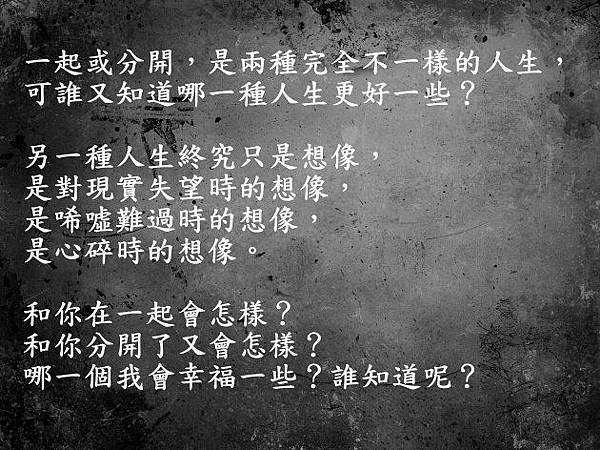 一起或分開，是兩種完全不一樣的人生，
可誰又知道哪一種人生更好一些？
另一種人生終究只是想像，
是對現實失望時的想像，
是唏噓難過時的想像，
是心碎時的想像。
和你在一起會怎樣？
和你分開了又會怎樣？
哪一個我會幸福一些？誰知道呢？